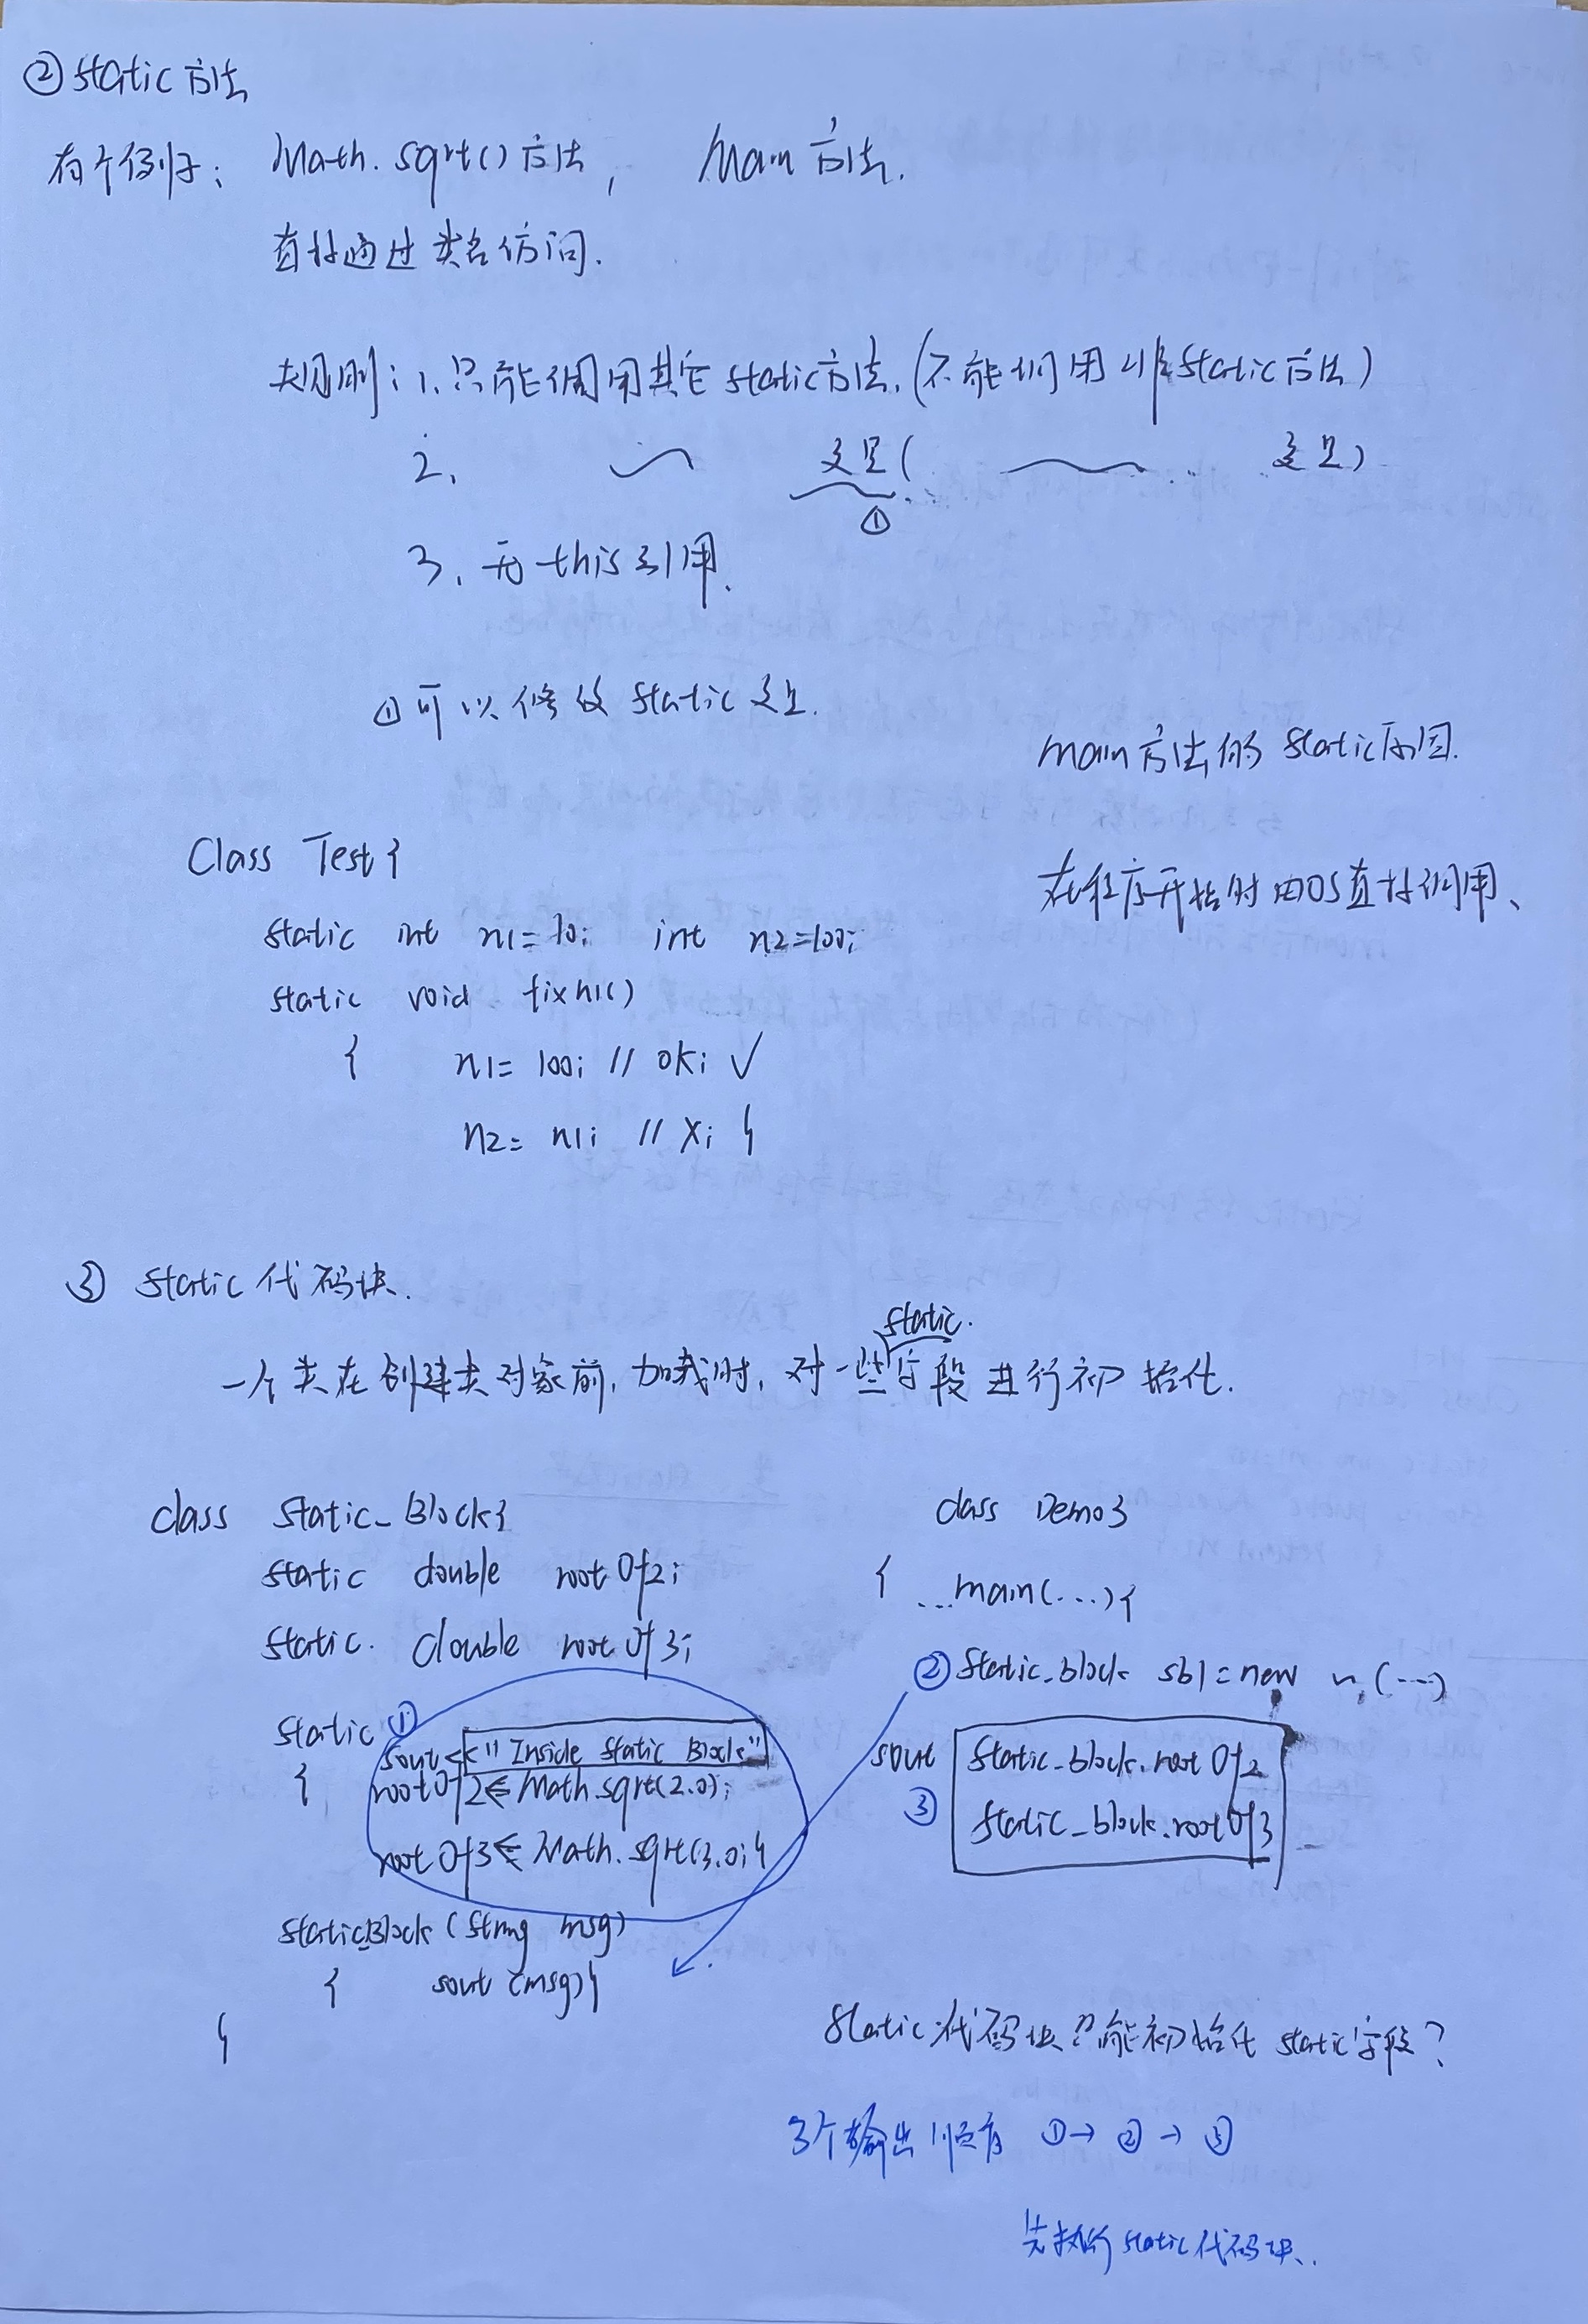 ② static 方法
有个例子: Math.sqrt() 方法, main 方法.
直接通过类名访问.
类规则: 1. 只能调用其它 static 方法. (不能调用非 static 方法)
2. ～ 变量 ( ～ 变量)
①
3. 无 this 引用.
① 可以修改 static 变量.
main 方法的 static 原因.
在程序开始时由OS直接调用、
Class Test {
static int n1=10; int n2=100;
static void fixn1()
{ n1= 100; // ok; ✓
n2= n1; // X; }
③ static 代码块.
static.
一个类在创建类对象前, 加载时, 对一些字段进行初始化.
class Static_Block{
static double rootOf2;
static. double rootOf3;
static ①
{ sout <"Inside Static Block"
rootOf2 ⇐ Math.sqrt(2.0);
rootOf3 ⇐ Math.sqrt(3.0; }
Static_Block (String msg)
{ sout (msg) }
}
class Demo3
{ ...main(...) {
② Static_block sb1 = new ～ (...)
sout Static_block.rootOf2
③ Static_block.rootOf3
Static 代码块只能初始化 static 字段?
3个输出顺序 ①→ ② → ③
先执行 static 代码块..